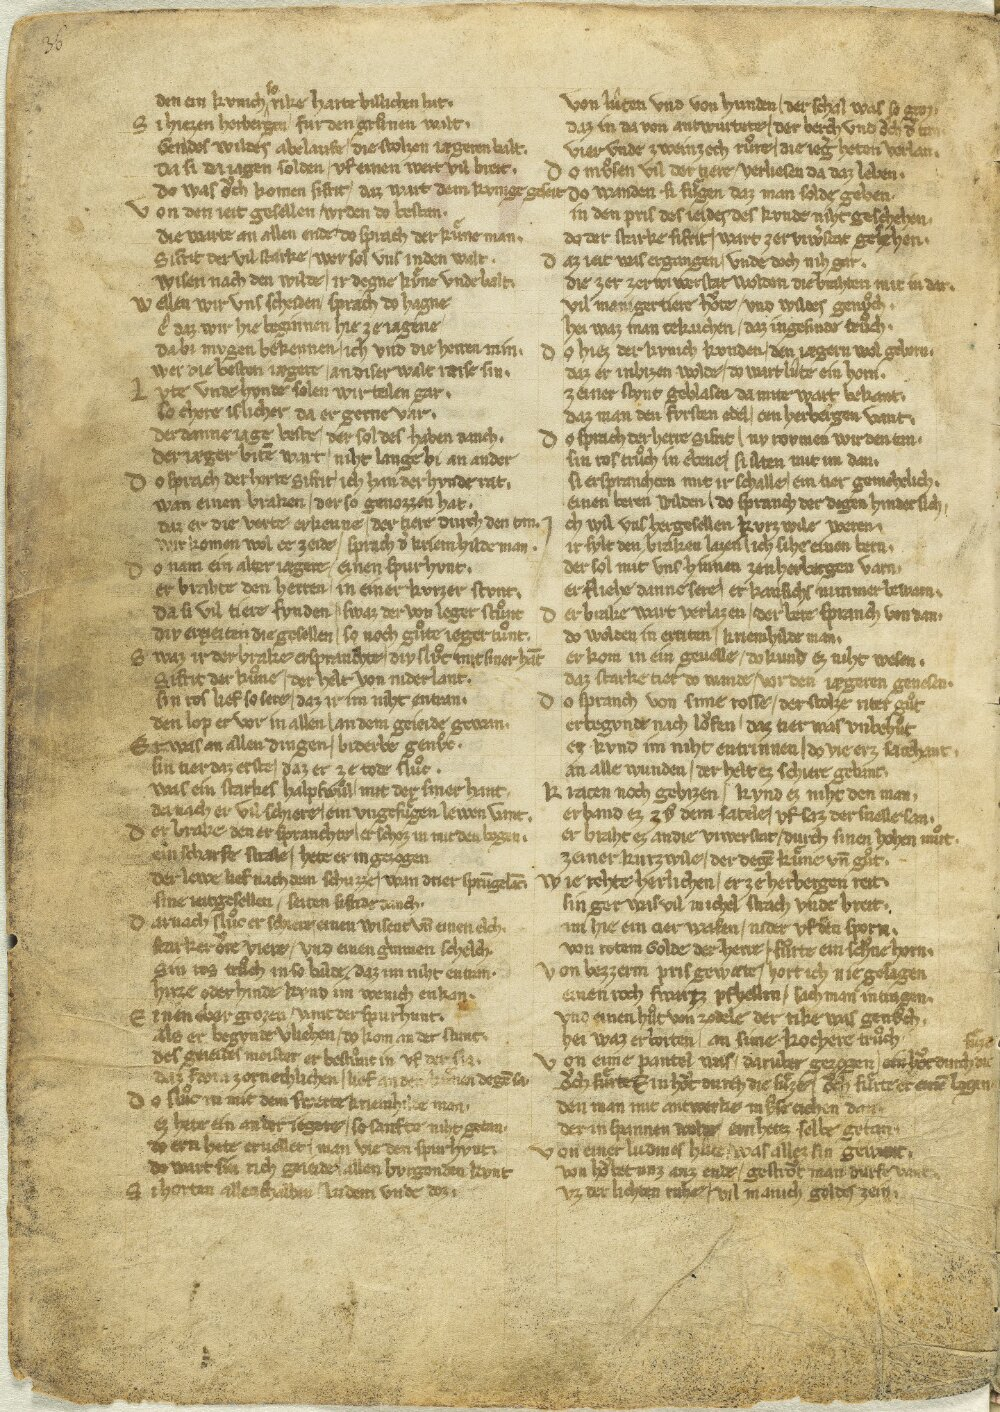 36
den ein kvnich so rike harte billichen hat.
S i hiezen herbergen / fur den grvnen walt.
Gendes wildes abelaufe / die stolzen iægeren balt.
Da si da iagen solden / vf einen wert vil breit.
do was och komen sifrit / daz wart dem kvnige geseit
V on den ieit gesellen / wrden do bestan.
die warte an allen ende do sprach der kune man.
Sifrit der vil starke / wer sol vns in den walt.
wisen nach den wilde / ir degne kune vnde balt.
W ellen wir vns scheiden / sprach do hagne
e daz wir hie beginnen hie ze iagene
da bi mvgen bekennen / ich vnd die herren min.
wer die besten iægere / an diser walt reise sin.
L vte vnde hvnde solen wir teilen gar.
so chere islicher da er gerne var.
der danne iage beste / der sol des haben danch.
der iæger bite wart / niht lange bi an ander
D o sprach der herre Sifrit / ich han der hvnde rat.
wan einen braken / der so genozzen hat.
daz er die verte erkenne / der tiere durch den tan.
wir komen wol ze zeide / sprach d kriemhilde man.
D o nam ein alter iægere / einen spurhvnt.
er brahte den herren / in einer kvrzer stvnt.
da si vil tiere fvnden / swaz der von leger stunt
dir erieiten die gesellen / so noch gute ieger tunt.
S waz ir der brake ersprancte / div slvc mit siner hant
Sifrit der kune / der helt von niderlant.
sin ros lief so sere / daz ir im niht entran.
den lop er vor in allen / an dem geieide gewan.
E r was an allen dingen / biderbe genvc.
sin tier daz erste / daz er ze tode sluc.
was ein starkes halpfwul / mit der siner hant.
da nach er vil schiere / ein vngefugen lewen vant.
D er brake den er sprancte / er schoz in mit den bogen.
ein scharfe strale / hete er in gezogen
der lewe lief nach dem schuzze / wan drier sprvnge lanc.
sine ieitgesellen / seiten sifride danch.
D arnach sluc er schiere / einen wisent vn einen elch.
starker ore viere / vnd einen grimmen schelch.
Sin ros truch in so balde / daz im niht entran.
hirze oder hinde kvnd im wenich enkan.
E inen eber grozen / vant der spurhunt.
als er begvnde vliehen / do kom an der stunt.
des geieides meister er bestunt in vf der sla.
D o sluc in mit dem swerte kriemhilde man.
ez hete ein ander iegere / so sanfte niht getan.
do ern hete ervellet / man vie den spurhvnt.
do wart sin rich geieide / allen bvrgonden kvnt
S i horten allenthalben / ludem vnde doz.
von luten vnd von hunden / der schal was so groz.
daz in da von antwurtete / der berch vnd och d tan
vier vnde zweinzech rure / die ieger heten verlan.
D o mvsen vil der tiere / verliesen da daz leben.
do wanden si fugen daz man solde geben.
in den pris des ieides des kvnde niht geschehen.
do der starke sifrit / wart zer viwerstat gesehen.
D az ieit was ergangen / vnde doch niht gar.
die zer viwerstat wolden die brahten mit in dar.
vil maniger tiere hute / vnd wildes genuch.
hei waz man zekuchen / daz ingesinde truch.
D o hiez der kvnich kvnden / den iægern wol geborn.
daz er inbizen wolde / do wart lute ein horn.
zeiner stvnt geblasen da mite wart bekant.
daz man den fvrsten edel / zen herbergen vant.
D o sprach der herre Sifrit / nv rovmen wir den tan.
sin ros truch in ebene / si ilten mit im dan.
si ersprancten mit ir schalle / ein tier gemehelich.
einen beren wilden / do sprach der degen hinder sich.
I ch wil vns hergesellen kvrzwile weren.
ir sylt den braken lazen / ich sihe einen bern.
der sol mit vns hinnen zen herbergen varn.
er fliehe danne sere / er kan sichs nimmer bewarn.
D er brake wart verlazen / der bere spranch von dan.
do wolden in eriten / kriemhilde man.
er kom in ein gevelle / do kund ez niht wesen.
daz starke tier do wande / vor den iægeren genesen.
D o spranch von sime rosse / der stolze riter gut
er begvnde nach lofen / daz tier was vnbehut
ez kvnd im niht entrinnen / do vie erz sa zehant.
an alle wunden / der helt ez schiere gebant.
K razen noch gebizen / kvnd ez niht den man.
er band ez zu dem satele / vf saz der snelle san.
er braht ez an die viwerstat / durch sinen hohen mut.
zeiner kurzwile / der degen kune vn gut.
W ie rehte herlichen / er ze herbergen reit.
sin ger was vil michel starch vnde breit.
im hie ein cier waffen / nider vf den sporn.
von rotem golde der herre / furte ein schone horn.
V on bezzerm pris gewæte / hort ich nie gesagen
einen roch swartz pfhellin / sach man in tragen.
vnd einen hut von zodele der rike was genuch.
hei waz er borten / an sime kochere truch
V on eime pantel was / daruber gezogen / ein hut durch die suze
och furte er einen bogen
den man mit antwerke muste ziehen dan.
der in spannen wolde ern hetez selbe getan.
V on einer ludmes hute / was allez sin gewant.
von houbet unz anz ende / gestrot man darufe vant.
vz der liehten ruhe / vil manich goldes zein.